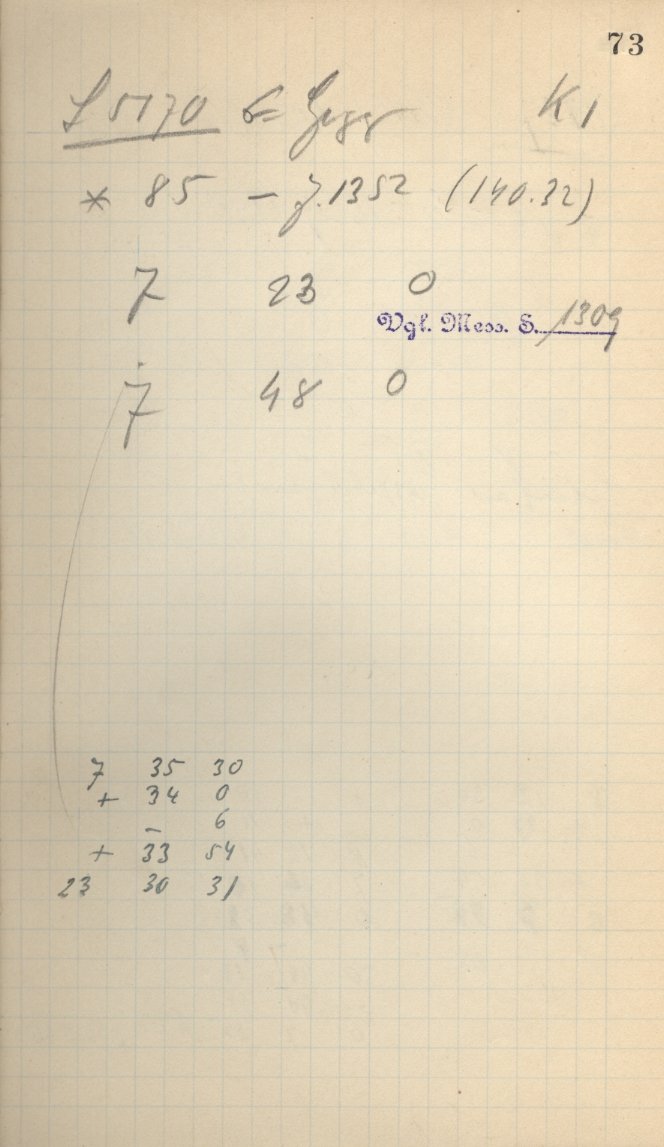 73
S 5170 K 1
* 85 – 7.1352 (140.32)
7 23 0
Vgl. Mess. S. 1309
7 48 0
7 35 30
+ 34 0
– 6
+ 33 54
23 30 31